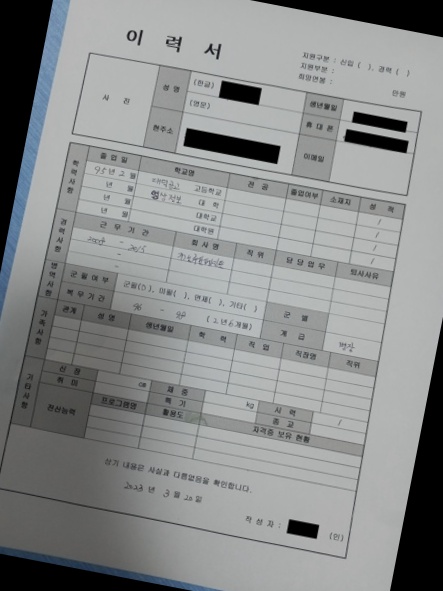 이 력 서
지원구분 : 신입 ( ), 경력 ( )
지원부분 :
희망연봉 : 만원
사 진
성 명 (한글) 생년월일
(영문) 휴 대 폰
현주소 이메일
학력사항
졸 업 일 학교명 전 공 졸업여부 소재지 성 적
95년 2월 고등학교 /
년 월 대 학 /
년 월 대학교 /
년 월 대학원 /
경력사항
근 무 기 간 회 사 명 직 위 담 당 업 무 퇴사사유
2008 - 2015
-
-
병역사항
군 필 여 부 군필( ), 미필( ), 면제( ), 기타( ) 군 별
복 무 기 간 96 - 98 (2년6개월) 계 급 병장
가족사항
관계 성 명 생년월일 학 력 직 업 직장명 직위
기타사항
신 장 cm 체 중 kg 시 력 /
취 미 특 기 종 교
전산능력 프로그램명 활용도 자격증 보유 현황
상기 내용은 사실과 다름없음을 확인합니다.
2023 년 3 월 20 일
작 성 자 : (인)